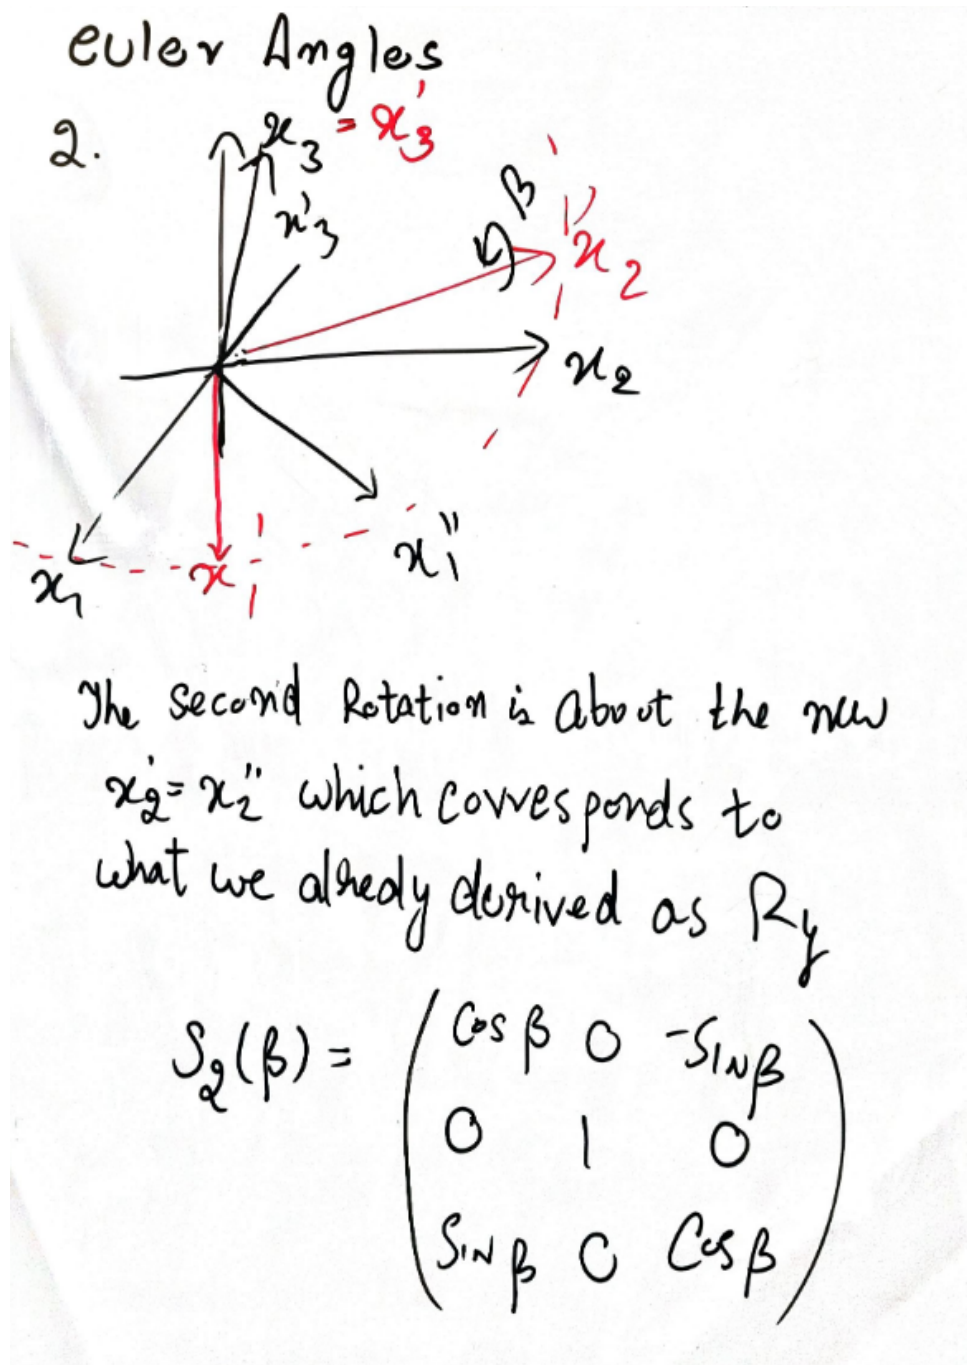 Euler Angles
2.
x₃ = x₃'
x'₃
β
x₂''
x₂
x₁''
x₁
x₁'
The second Rotation is about the new
x₂' = x₂'' which corresponds to
what we alredy derived as Ry
S₂(β) =
Cos β 0 -SINβ
0 1 0
SIN β 0 Cos β